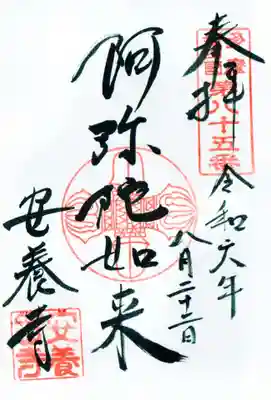 奉拝
第八十五番
令和六年
八月二十二日
阿弥陀如来
安養寺
安養寺